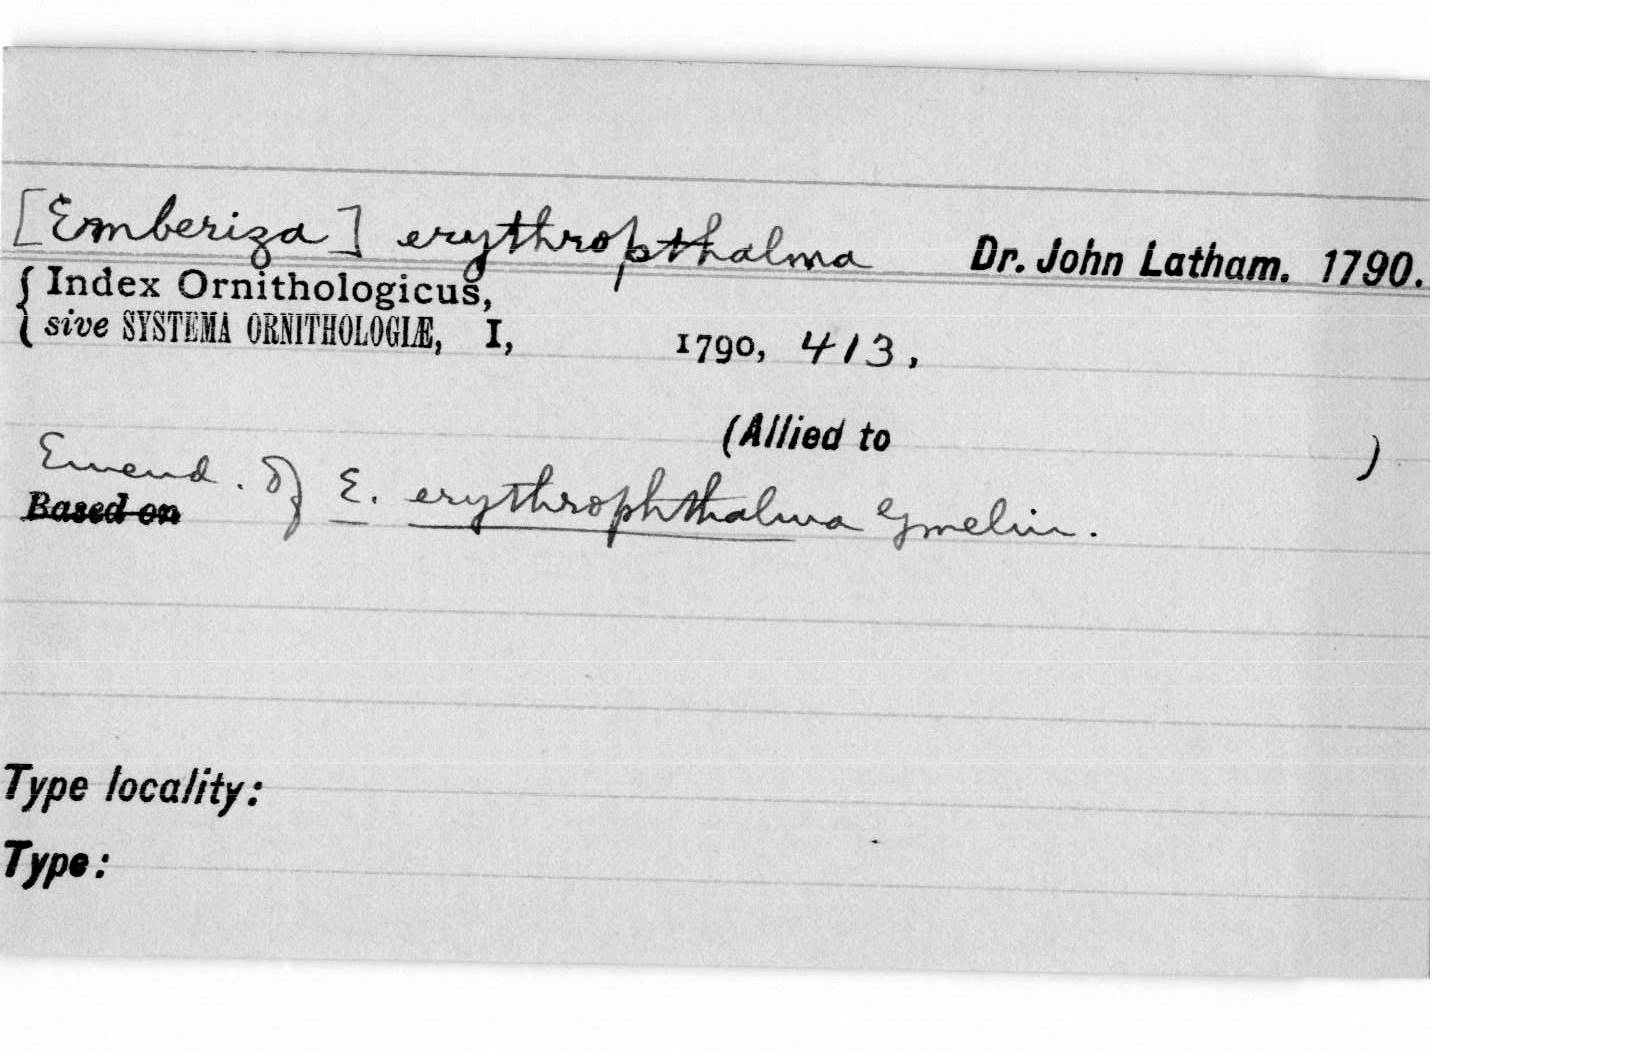 [Emberiza] erythropthalma Dr. John Latham. 1790.
{ Index Ornithologicus,
sive SYSTEMA ORNITHOLOGIÆ, I, 1790, 413,
(Allied to )
Emend. of E. erythrophthalma Gmelin.
Based on
Type locality:
Type: